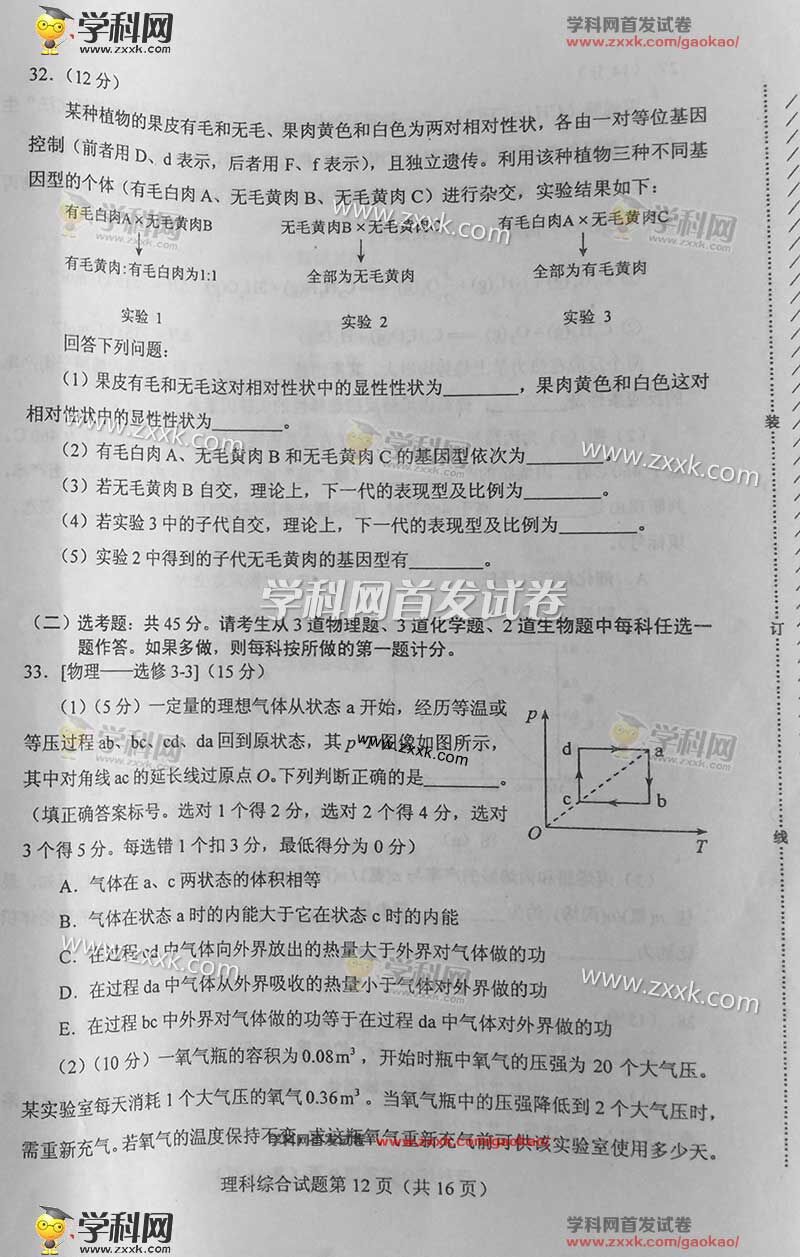 学科网
www.zxxk.com
学科网首发试卷
www.zxxk.com/gaokao/
32.（12分）
某种植物的果皮有毛和无毛、果肉黄色和白色为两对相对性状，各由一对等位基因
控制（前者用 D、d 表示，后者用 F、f 表示），且独立遗传。利用该种植物三种不同基
因型的个体（有毛白肉 A、无毛黄肉 B、无毛黄肉 C）进行杂交，实验结果如下：
有毛白肉A×无毛黄肉B 无毛黄肉B×无毛黄肉C 有毛白肉A×无毛黄肉C
有毛黄肉:有毛白肉为1:1 全部为无毛黄肉 全部为有毛黄肉
实验 1 实验 2 实验 3
回答下列问题：
（1）果皮有毛和无毛这对相对性状中的显性性状为________，果肉黄色和白色这对
相对性状中的显性性状为________。
（2）有毛白肉 A、无毛黄肉 B 和无毛黄肉 C 的基因型依次为________。
（3）若无毛黄肉 B 自交，理论上，下一代的表现型及比例为________。
（4）若实验 3 中的子代自交，理论上，下一代的表现型及比例为________。
（5）实验 2 中得到的子代无毛黄肉的基因型有________。
学科网首发试卷
（二）选考题：共 45 分。请考生从 3 道物理题、3 道化学题、2 道生物题中每科任选一
题作答。如果多做，则每科按所做的第一题计分。
33．[物理——选修 3-3]（15 分）
（1）（5 分）一定量的理想气体从状态 a 开始，经历等温或
等压过程 ab、bc、cd、da 回到原状态，其 p 图像如图所示，
其中对角线 ac 的延长线过原点 O。下列判断正确的是________。
（填正确答案标号。选对 1 个得 2 分，选对 2 个得 4 分，选对
3 个得 5 分。每选错 1 个扣 3 分，最低得分为 0 分）
p
d a
c b
O T
A．气体在 a、c 两状态的体积相等
B．气体在状态 a 时的内能大于它在状态 c 时的内能
C．在过程 cd 中气体向外界放出的热量大于外界对气体做的功
D．在过程 da 中气体从外界吸收的热量小于气体对外界做的功
E．在过程 bc 中外界对气体做的功等于在过程 da 中气体对外界做的功
（2）（10 分）一氧气瓶的容积为 0.08m³，开始时瓶中氧气的压强为 20 个大气压。
某实验室每天消耗 1 个大气压的氧气 0.36m³。当氧气瓶中的压强降低到 2 个大气压时，
需重新充气。若氧气的温度保持不变，求这瓶氧气重新充气前可供该实验室使用多少天。
学科网首发试卷 www.zxxk.com/gaokao/
理科综合试题第 12 页（共 16 页）
学科网
www.zxxk.com
学科网首发试卷
www.zxxk.com/gaokao/
装
订
线